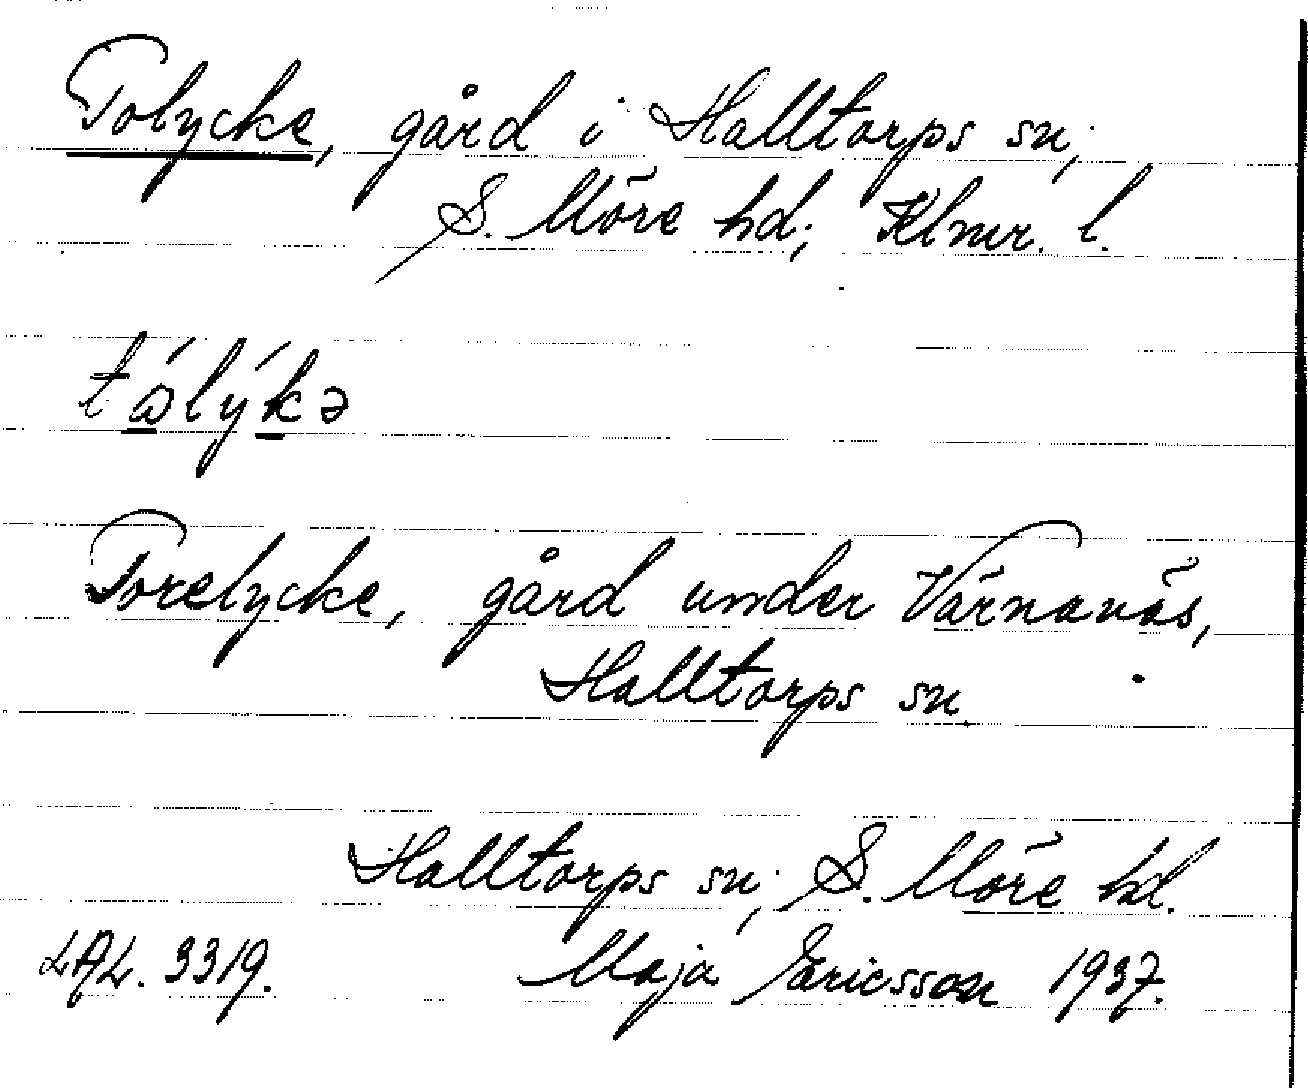 Tolycke, gård i Halltorps sn;
S. Möre hd; Klmr. l.
tålýkə
Torelycke, gård under Värnanäs,
Halltorps sn.
Halltorps sn; S. Möre hd.
LAL. 3319. Maja Ericsson 1937.